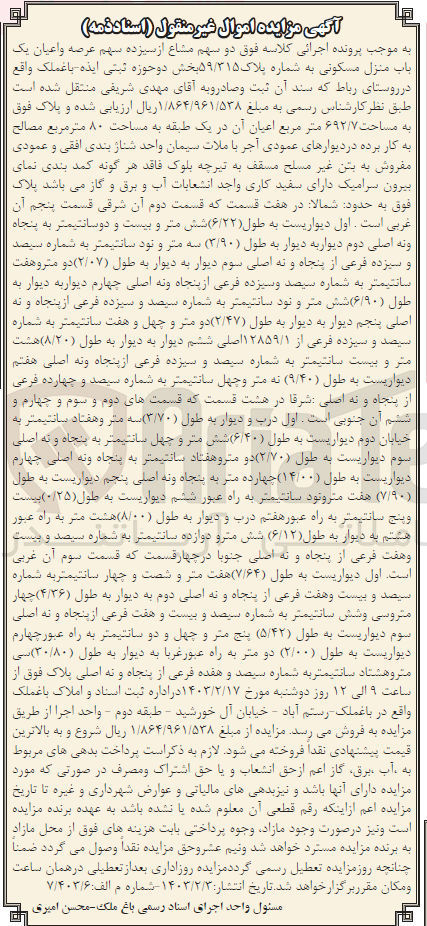 آگهی مزایده اموال غیرمنقول (اسنادذمه)
به موجب پرونده اجرائی کلاسه فوق دو سهم مشاع ازسیزده سهم عرصه واعیان یک
باب منزل مسکونی به شماره پلاک۵۹/۳۱۵بخش دوحوزه ثبتی ایذه-باغملک واقع
درروستای رباط که سند آن ثبت وصادروبه آقای مهدی شریفی منتقل شده است
طبق نظرکارشناس رسمی به مبلغ ۱/۸۶۴/۹۶۱/۵۳۸ریال ارزیابی شده و پلاک فوق
به مساحت۶۹۲/۷ متر مربع اعیان آن در یک طبقه به مساحت ۸۰ مترمربع مصالح
به کار برده دردیوارهای عمودی آجر با ملات سیمان واحد شناژ بندی افقی و عمودی
مفروش به بتن غیر مسلح مسقف به تیرچه بلوک فاقد هر گونه کمد بندی نمای
بیرون سرامیک دارای سفید کاری واجد انشعابات آب و برق و گاز می باشد پلاک
فوق به حدود: شمالا: در هفت قسمت که قسمت دوم آن شرقی قسمت پنجم آن
غربی است . اول دیواریست به طول(۶/۲۲)شش متر و بیست و دوسانتیمتر به پنجاه
ونه اصلی دوم دیواربه دیوار به طول (۳/۹۰) سه متر و نود سانتیمتر به شماره سیصد
و سیزده فرعی از پنجاه و نه اصلی سوم دیوار به دیوار به طول (۲/۰۷)دو متروهفت
سانتیمتر به شماره سیصد وسیزده فرعی ازپنجاه ونه اصلی چهارم دیواربه دیوار به
طول (۶/۹۰)شش متر و نود سانتیمتر به شماره سیصد و سیزده فرعی ازپنجاه و نه
اصلی پنجم دیوار به دیوار به طول (۲/۴۷)دو متر و چهل و هفت سانتیمتر به شماره
سیصد و سیزده فرعی از ۱۲۸۵۹/۱اصلی ششم دیوار به دیوار به طول (۸/۲۰)هشت
متر و بیست سانتیمتر به شماره سیصد و سیزده فرعی ازپنجاه ونه اصلی هفتم
دیواریست به طول (۹/۴۰) نه متر وچهل سانتیمتر به شماره سیصد و چهارده فرعی
از پنجاه و نه اصلی :شرقا در هشت قسمت که قسمت های دوم و سوم و چهارم و
ششم آن جنوبی است . اول درب و دیوار به طول (۳/۷۰)سه متر وهفتاد سانتیمتر به
خیابان دوم دیواریست به طول (۶/۴۰)شش متر و چهل سانتیمتر به پنجاه و نه اصلی
سوم دیواریست به طول (۲/۷۰)دو متروهفتاد سانتیمتر به پنجاه ونه اصلی چهارم
دیواریست به طول (۱۴/۰۰)چهارده متر به پنجاه ونه اصلی پنجم دیواریست به طول
(۷/۹۰) هفت مترونود سانتیمتر به راه عبور ششم دیواریست به طول(۰/۲۵)بیست
وپنج سانتیمتر به راه عبورهفتم درب و دیوار به طول (۸/۰۰)هشت متر به راه عبور
هشتم به دیوار به طول(۶/۱۲) شش مترو دوازده سانتیمتر به شماره سیصد و بیست
وهفت فرعی از پنجاه و نه اصلی جنوبا درچهارقسمت که قسمت سوم آن غربی
است. اول دیواریست به طول (۷/۶۴)هفت متر و شصت و چهار سانتیمتربه شماره
صیصد و بیست وهفت فرعی از پنجاه و نه اصلی دوم به دیوار به طول (۴/۳۶)چهار
متروسی وشش سانتیمتر به شماره سیصد و بیست و هفت فرعی ازپنجاه و نه اصلی
سوم دیواریست به طول (۵/۴۲) پنج متر و چهل و دو سانتیمتر به راه عبورچهارم
دیواریست به طول (۲/۰۰) دو متر به راه عبورغربا به دیوار به طول (۳۰/۸۰)سی
متروهشتاد سانتیمتربه شماره سیصد و هفده فرعی از پنجاه و نه اصلی پلاک فوق از
ساعت ۹ الی ۱۲ روز دوشنبه مورخ ۱۴۰۳/۲/۱۷دراداره ثبت اسناد و املاک باغملک
واقع در باغملک-رستم آباد - خیابان آل خورشید - طبقه دوم - واحد اجرا از طریق
مزایده به فروش می رسد. مزایده از مبلغ ۱/۸۶۴/۹۶۱/۵۳۸ ریال شروع و به بالاترین
قیمت پیشنهادی نقداً فروخته می شود. لازم به ذکراست پرداخت بدهی های مربوط
به ،آب ،برق، گاز اعم ازحق انشعاب و یا حق اشتراک ومصرف در صورتی که مورد
مزایده دارای آنها باشد و نیزبدهی های مالیاتی و عوارض شهرداری و غیره تا تاریخ
مزایده اعم ازاینکه رقم قطعی آن معلوم شده یا نشده باشد به عهده برنده مزایده
است ونیز درصورت وجود مازاد، وجوه پرداختی بابت هزینه های فوق از محل مازاد
به برنده مزایده مسترد خواهد شد ونیم عشروحق مزایده نقداً وصول می گردد ضمناً
چنانچه روزمزایده تعطیل رسمی گرددمزایده روزاداری بعدازتعطیلی درهمان ساعت
ومکان مقرربرگزارخواهد شد.تاریخ انتشار:۱۴۰۳/۲/۳-شماره م الف:۷/۴۰۳/۶
مسئول واحد اجرای اسناد رسمی باغ ملک-محسن امیری